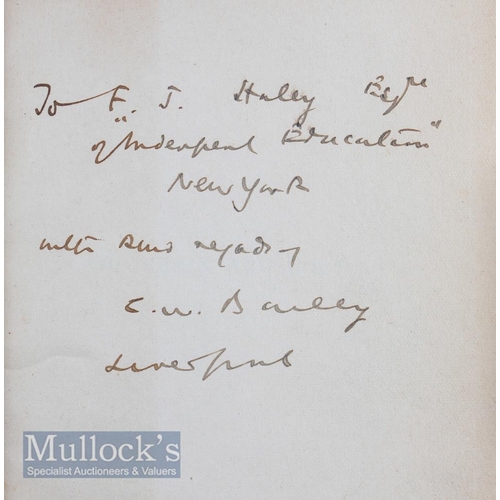 To F. J. Haley Esqre
of "Independent Education"
New York
with kind regards of
C. W. Bailey
Liverpool
Mullock's
Specialist Auctioneers & Valuers